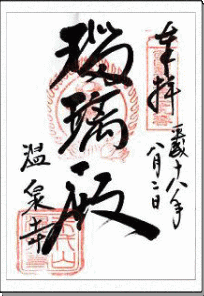 奉拝
平成十八年
八月二日
瑠璃殿
温泉寺